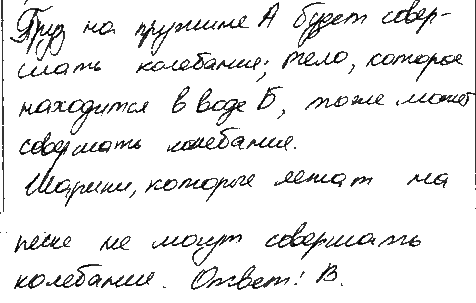 Груз на пружине А будет совер-
шать колебание; тело, которое
находится в воде Б, тоже может
совершать колебание.
Шарики, которые лежат на
песке не могут совершать
колебание. Ответ: В.